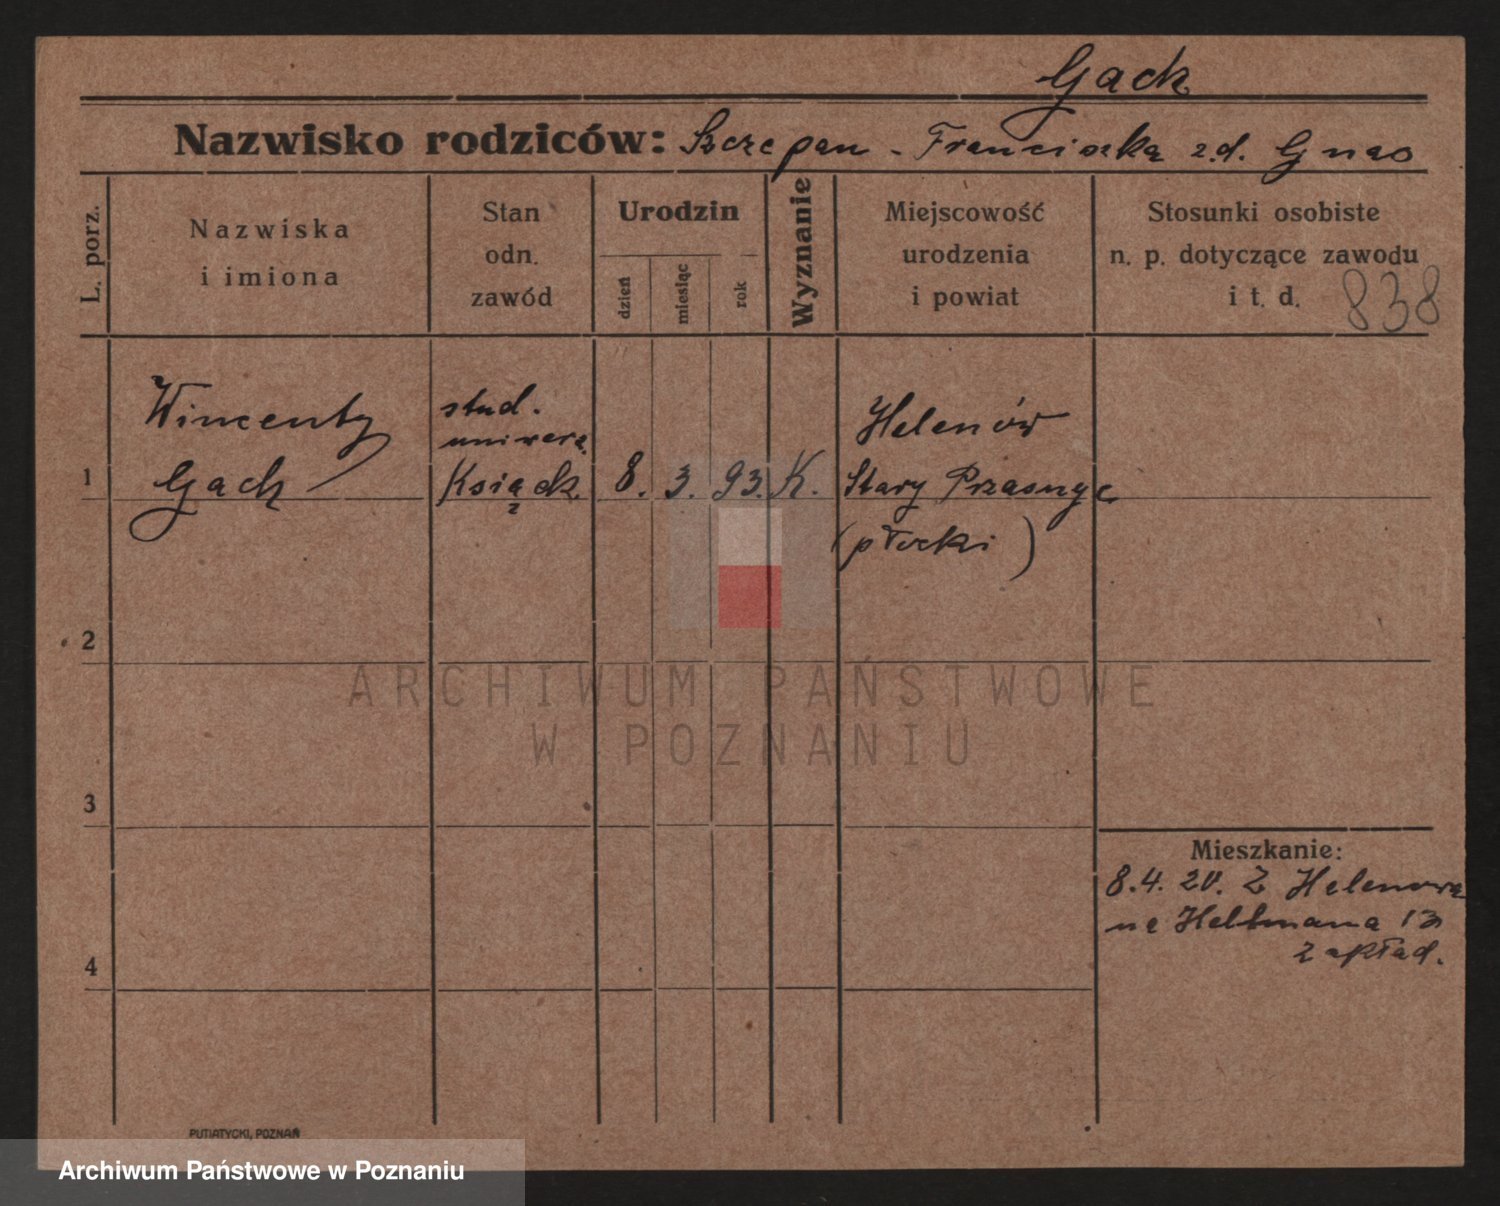 Gack
Nazwisko rodziców: Szczepan - Franciszka z.d. Gnas
L. porz.
Nazwiska
i imiona
Stan
odn.
zawód
Urodzin
dzień
miesiąc
rok
Wyznanie
Miejscowość
urodzenia
i powiat
Stosunki osobiste
n. p. dotyczące zawodu
i t. d.
838
1
Wincenty
Gack
stud.
uniwers.
Ksiądz
8. 3. 93. K.
Helenów
Stary Przasnyc
(płocki)
2
3
4
Mieszkanie:
8.4. 20. Z Helenowa
na 13
zakład.
ARCHIWUM PAŃSTWOWE
W POZNANIU
PUTIATYCKI, POZNAŃ
Archiwum Państwowe w Poznaniu